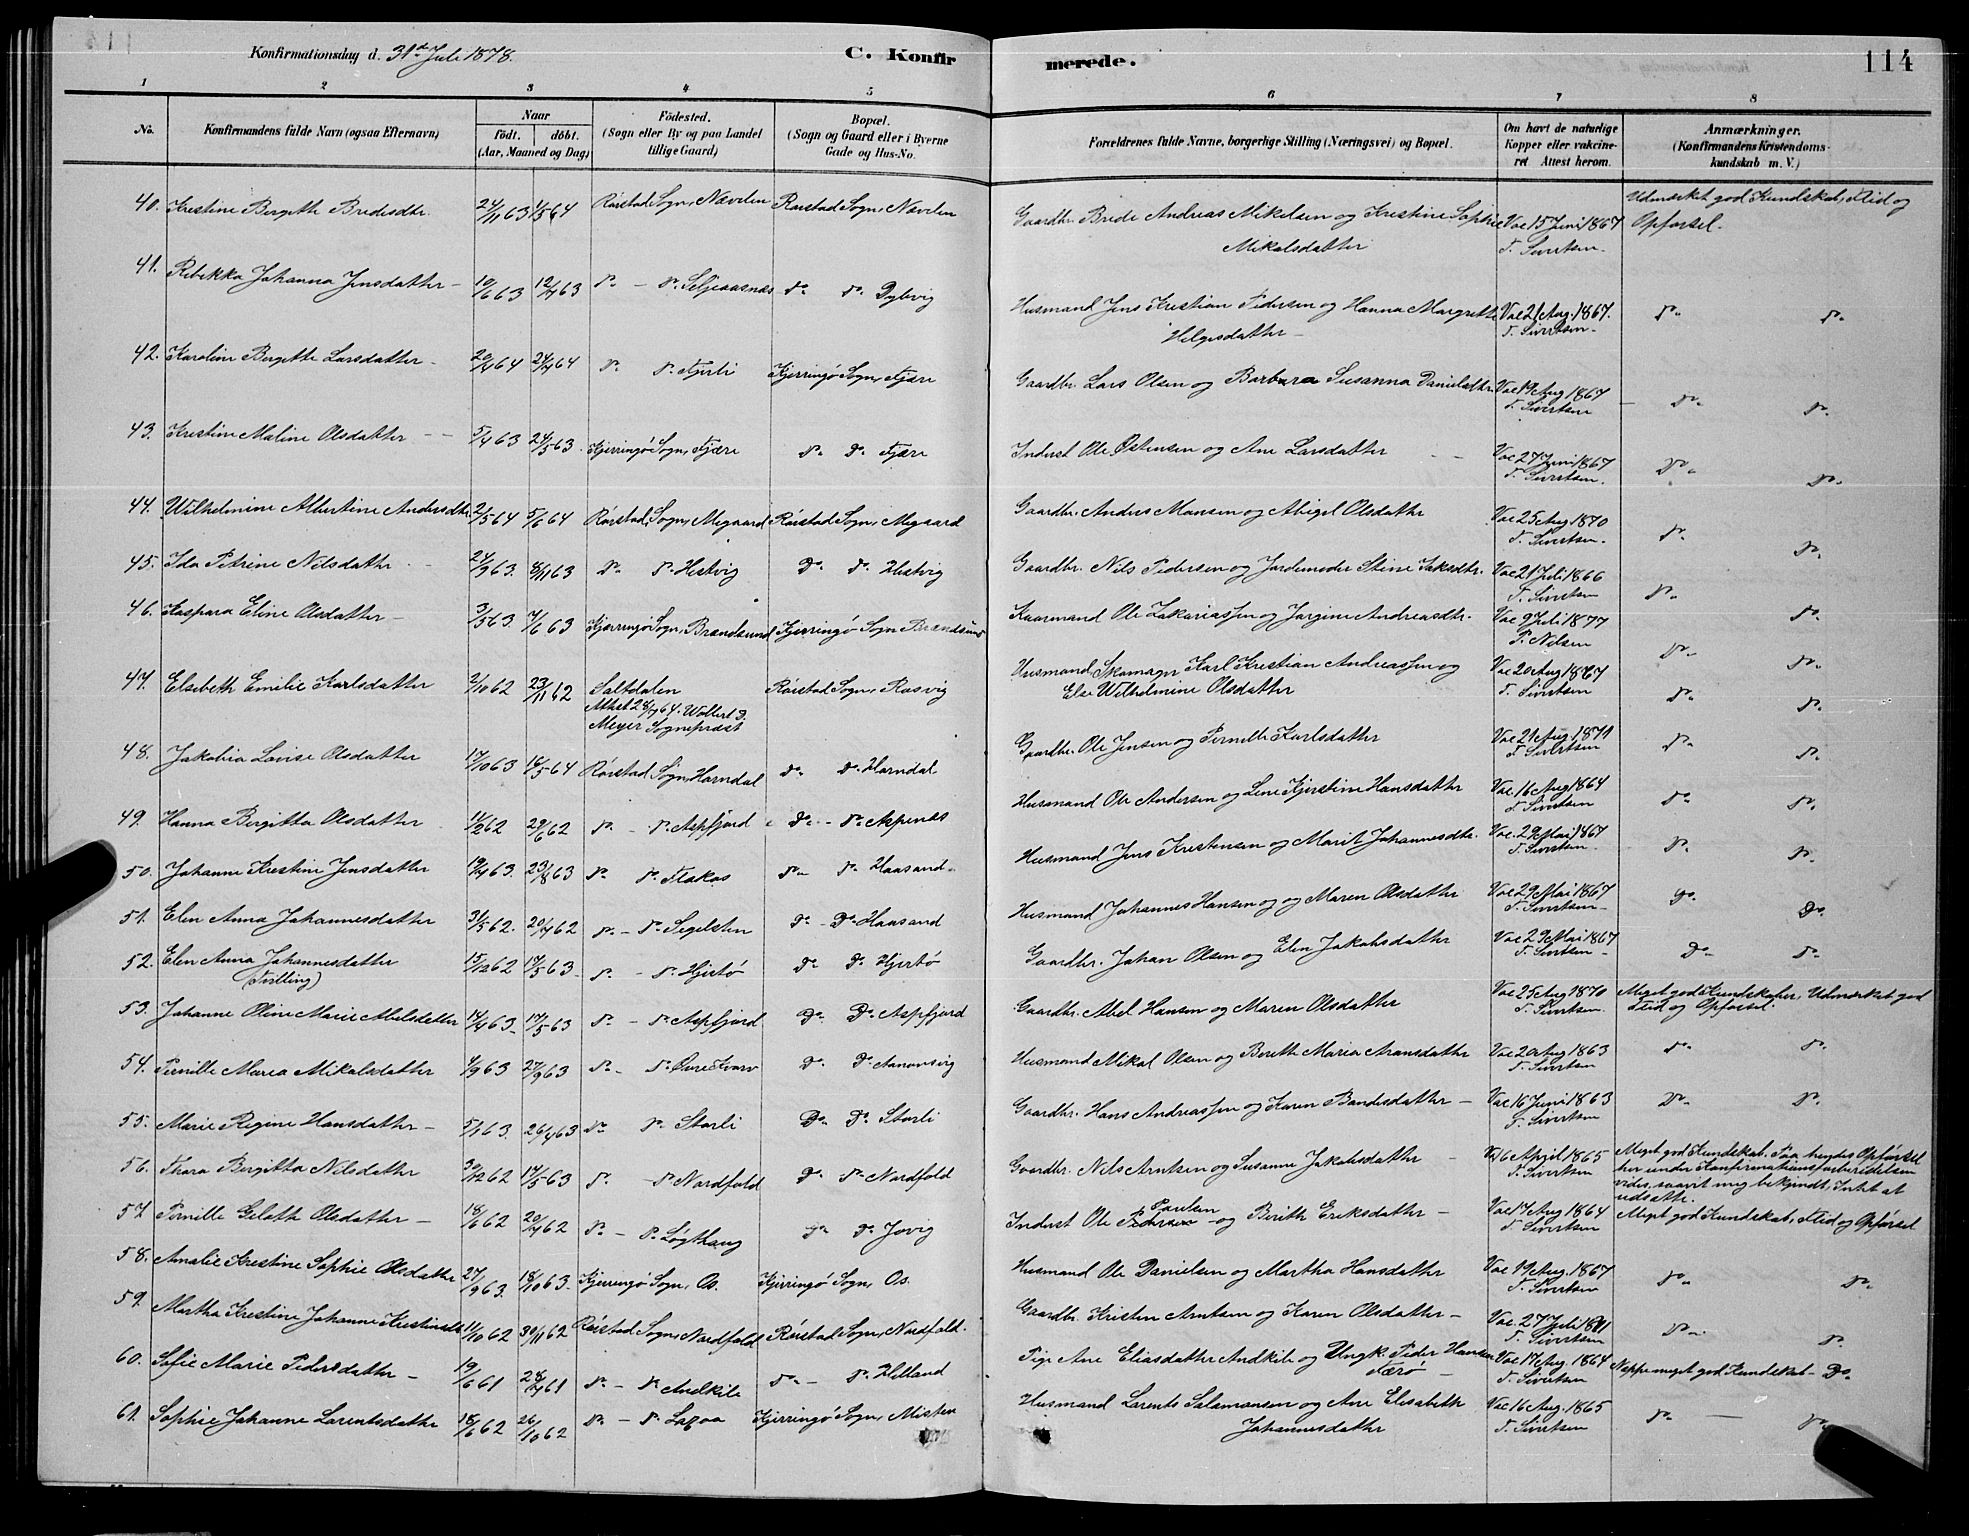 Konfirmationsdag d. 31te Juli 1878.
C. Konfirmerede.
114
1 2 3 4 5 6 7 8
No. Konfirmandens fulde Navn (ogsaa Efternavn) Naar födt. döbt. (Aar, Maaned og Dag) Födested. (Sogn eller By og paa Landet tillige Gaard) Bopæl. (Sogn og Gaard eller i Byerne Gade og Hus-No. Forældrenes fulde Navne, borgerlige Stilling (Næringsvei) og Bopæl. Om havt de naturlige Kopper eller vakcineret Attest herom. Anmærkninger. (Konfirmandens Kristendomskundskab m. V.)
40. Kristine Bergitte Bredesdtr. 24/11 63 1/5 64 Rørstad Sogn, Nævelen Rørstad Sogn, Nævelen Gaardbr. Brede Andreas Mikelsen og Kristine Sophie Mikalsdatter Vac 15 Juni 1867 T. Sivertsen. Udmærket god Kundskab, Flid og Opførsel.
41. Rebekka Johanna Jensdatter 10/6 63 12/7 63 do - do Seljeaasnes do do Dybvig Husmand Jens Kristian Pedersen og Hanna Margrethe Helgesdatter Vac 21 Aug. 1867. T. Sivertsen do do
42. Karoline Bergitte Larsdatter 20/4 64 24/7 64 do do Fjerli Kjerringö Sogn, Fjære Gaardbr. Lars Olsen og Barbara Susanna Danielsdtr. Vac 19 Aug 1867 T. Sivertsen do do
43. Kristine Maline Olsdatter 5/4 63 24/5 63 Kjerringö Sogn, Fjære do do Fjære Inderst Ole Østensen og Ane Larsdatter Vac 27 Juni 1867 T. Sivertsen. do do
44. Wilhelmine Albertine Andersdtr. 2/5 64 5/6 64 Rørstad Sogn, Megaard Rørstad Sogn, Megaard Gaardbr. Anders Monsen og Abigel Olsdatter Vac 25 Aug 1870 T. Sivertsen. do do
45. Ida Petrine Nilsdatter 24/9 63. 8/11 63 do do Hestvig do do Hestvig Gaardbr. Nils Pedersen og Jordemoder Stine Isaksdtr. Vac 21 Juli 1866 T. Sivertsen do do
46. Kaspara Eline Olsdatter 3/5 63. 7/6 63 Kjerringö Sogn, Brændsund Kjerringö Sogn Brændsund Kaarmand Ole Zakariassen og Jørgine Andreasdtr. Vac 9 Juli 1877 P. Nilsen do do
47. Elsebeth Emilie Karlsdatter 2/10 62 23/11 62 Saltdalen Attest 28/7 64. Wollert D. Meyer Sogneprest Rørstad Sogn, Rosvig Husmand, Skomager Karl Kristian Andreassen og Else Wilhelmine Olsdatter Vac 20 Aug 1867 T. Sivertsen do do
48. Jakobia Lovise Olsdatter 17/10 63 16/5 64 Rørstad Sogn, Horndal do do Horndal Gaardbr. Ole Jensen og Pernille Karlsdatter Vac 21 Aug 1871 T. Sivertsen do do
49. Hanna Bergitta Olsdatter 14/2 62 29/6 62 do - do Aspfjord do - do Aspenes Husmand Ole Andersen og Lene Kjerstine Hansdatter Vac 16 Aug 1864 T. Sivertsen do do
50. Johanne Kristine Jensdatter 19/4 63. 23/8 63 do do Flakas do do Haasand Husmand Jens Kristensen og Marit Johannesdtr. Vac. 29 Mai 1867 T. Sivertsen. do do
51. Elen Anna Johannesdatter 31/5 62. 20/7 62 do - do Segelsten do - do Haasand Husmand Johannes Hansen og og Maren Olsdatter Vac 29 Mai 1867 T. Sivertsen do do
52. Elen Anna Johannesdatter (Tvilling) 15/12 62 17/5 63 do - do Hjertö do do Hjertö Gaardbr. Johan Olsen og Elen Jakobsdatter Vac 29 Mai 1867 T. Sivertsen do do
53. Johanne Oline Marie Abelsdatter 14/4 63 17/5 63 do - do Aspfjord do do Aspfjord Gaardbr. Abel Hansen og Maren Olsdatter Vac 25 Aug 1870 T. Sivertsen. Meget god Kundskaper, Udmærket god Flid og Opførsel.
54. Pernille Maria Mikalsdatter 4/9 63 27/9 63 do - do Øvre Kvarv do do Aanonsvig Husmand Mikal Olsen og Berith Maria Aronsdatter Vac 20 Aug 1863 T. Sivertsen do do
55. Marie Regine Hansdatter 5/1 63. 26/4 63 do do Storli do do Storli Gaardbr. Hans Andreassen og Karen Baardsdatter Vac 16 Juni 1863 T. Sivertsen do do
56. Thora Bergitta Nilsdatter 30/12 62 17/5 63 do - do Nordfold do do Nordfold Gaardbr. Nils Arntsen og Susanne Jakobsdatter Vac 16 April 1865 T. Sivertsen Meget god Kundskab. Paa hendes Opførsel her under Konfirmationsforberedelsen vides, saavit meg bekjendt, Intet at udsætte.
57 Pernille Gelotte Olsdatter 18/6 62 20/7 62 do - do Løgthaug do do Jovig Inderst Ole Paulsen og Berith Eriksdatter Vac 17 Aug 1864 T. Sivertsen Meget god Kundskab, Flid og Opførsel
58. Amalie Kristine Sophie Olsdatter 27/9 63 18/10 63. Kjerringö Sogn, Os. Kjerringö Sogn, Os. Husmand Ole Danielsen og Martha Hansdatter Vac 19 Aug. 1867 T. Sivertsen do do
59. Martha Kristine Johanne Kristinsdtr 11/10 62 30/11 62 Rørstad Sogn, Nordfold Rørstad Sogn, Nordfold. Gaardbr. Kristen Arntsen og Karen Olsdatter Vac. 27 Juli T. Sivertsen do do
60. Sofie Marie Pedersdatter 19/6 61 28/7 61 do - do Andkile do - do Helland Pige Ane Eliasdatter Andkile og Ungk. Peder Hansen Færø Vac 17 Aug. 1864 T. Sivertsen Neppe meget god Kundskab - do
61. Sophie Johanne Larentsdatter 18/6 62 26/10 62 do - do Kjerringö Sogn, Misten Husmand Larents Salamonsen og Ane Elisabeth Johannesdatter Vac 16 Aug. 1865 T. Sivertsen do - do